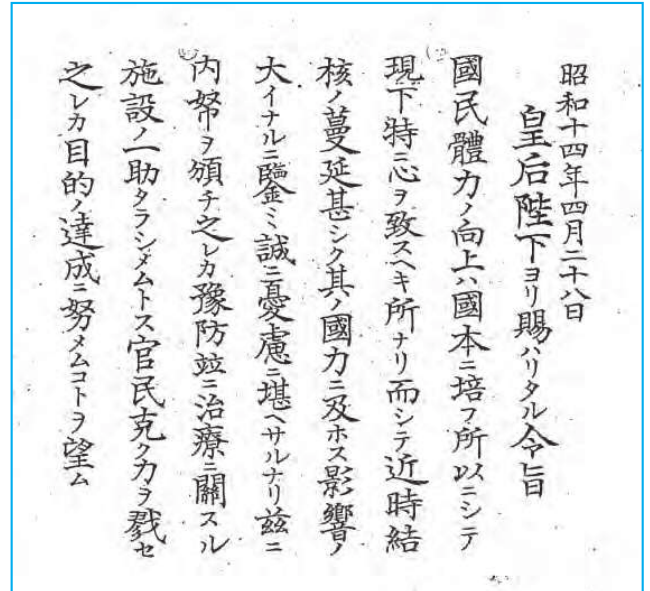 昭和十四年四月二十八日
皇后陛下ヨリ賜ハリタル令旨
國民體力ノ向上ハ國本ニ培フ所以ニシテ
現下特ニ心ヲ致スヘキ所ナリ而シテ近時結
核ノ蔓延甚シク其ノ國力ニ及ホス影響ノ
大イナルニ鑒ミ誠ニ憂慮ニ堪ヘサルナリ茲ニ
内帑ヲ頒チ之レカ豫防竝ニ治療ニ關スル
施設ノ一助タラシメムトス官民克ク力ヲ戮セ
之レカ目的ノ達成ニ努メムコトヲ望ム